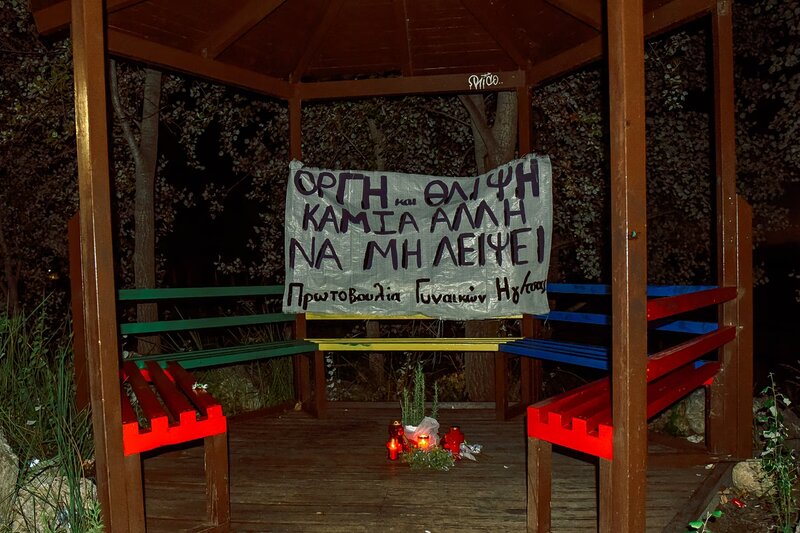 ΟΡΓΗ και ΘΛΙΨΗ
ΚΑΜΙΑ ΑΛΛΗ
ΝΑ ΜΗ ΛΕΙΨΕΙ
Πρωτοβουλία Γυναικών Ηγ/τσας